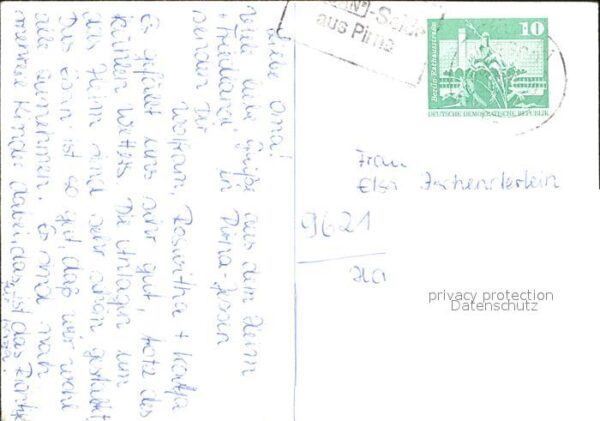 Liebe Oma!
viele liebe Grüße aus dem Heim
"Friedland" in Pirna-Jessen
senden Dir
Wolfram, Roswitha + Katja
Es gefällt uns sehr gut, trotz des
kühlen Wetters. Die Anlagen um
das Heim sind sehr schön gestaltet
Das Essen ist so gut, daß wir wohl
alle zunehmen. Es sind noch
mehrere Kinder dabei, das ist das
aus Pirna
10
Berlin-Rathausstraße
DEUTSCHE DEMOKRATISCHE REPUBLIK
Frau
Elsa
9621
privacy protection
Datenschutz